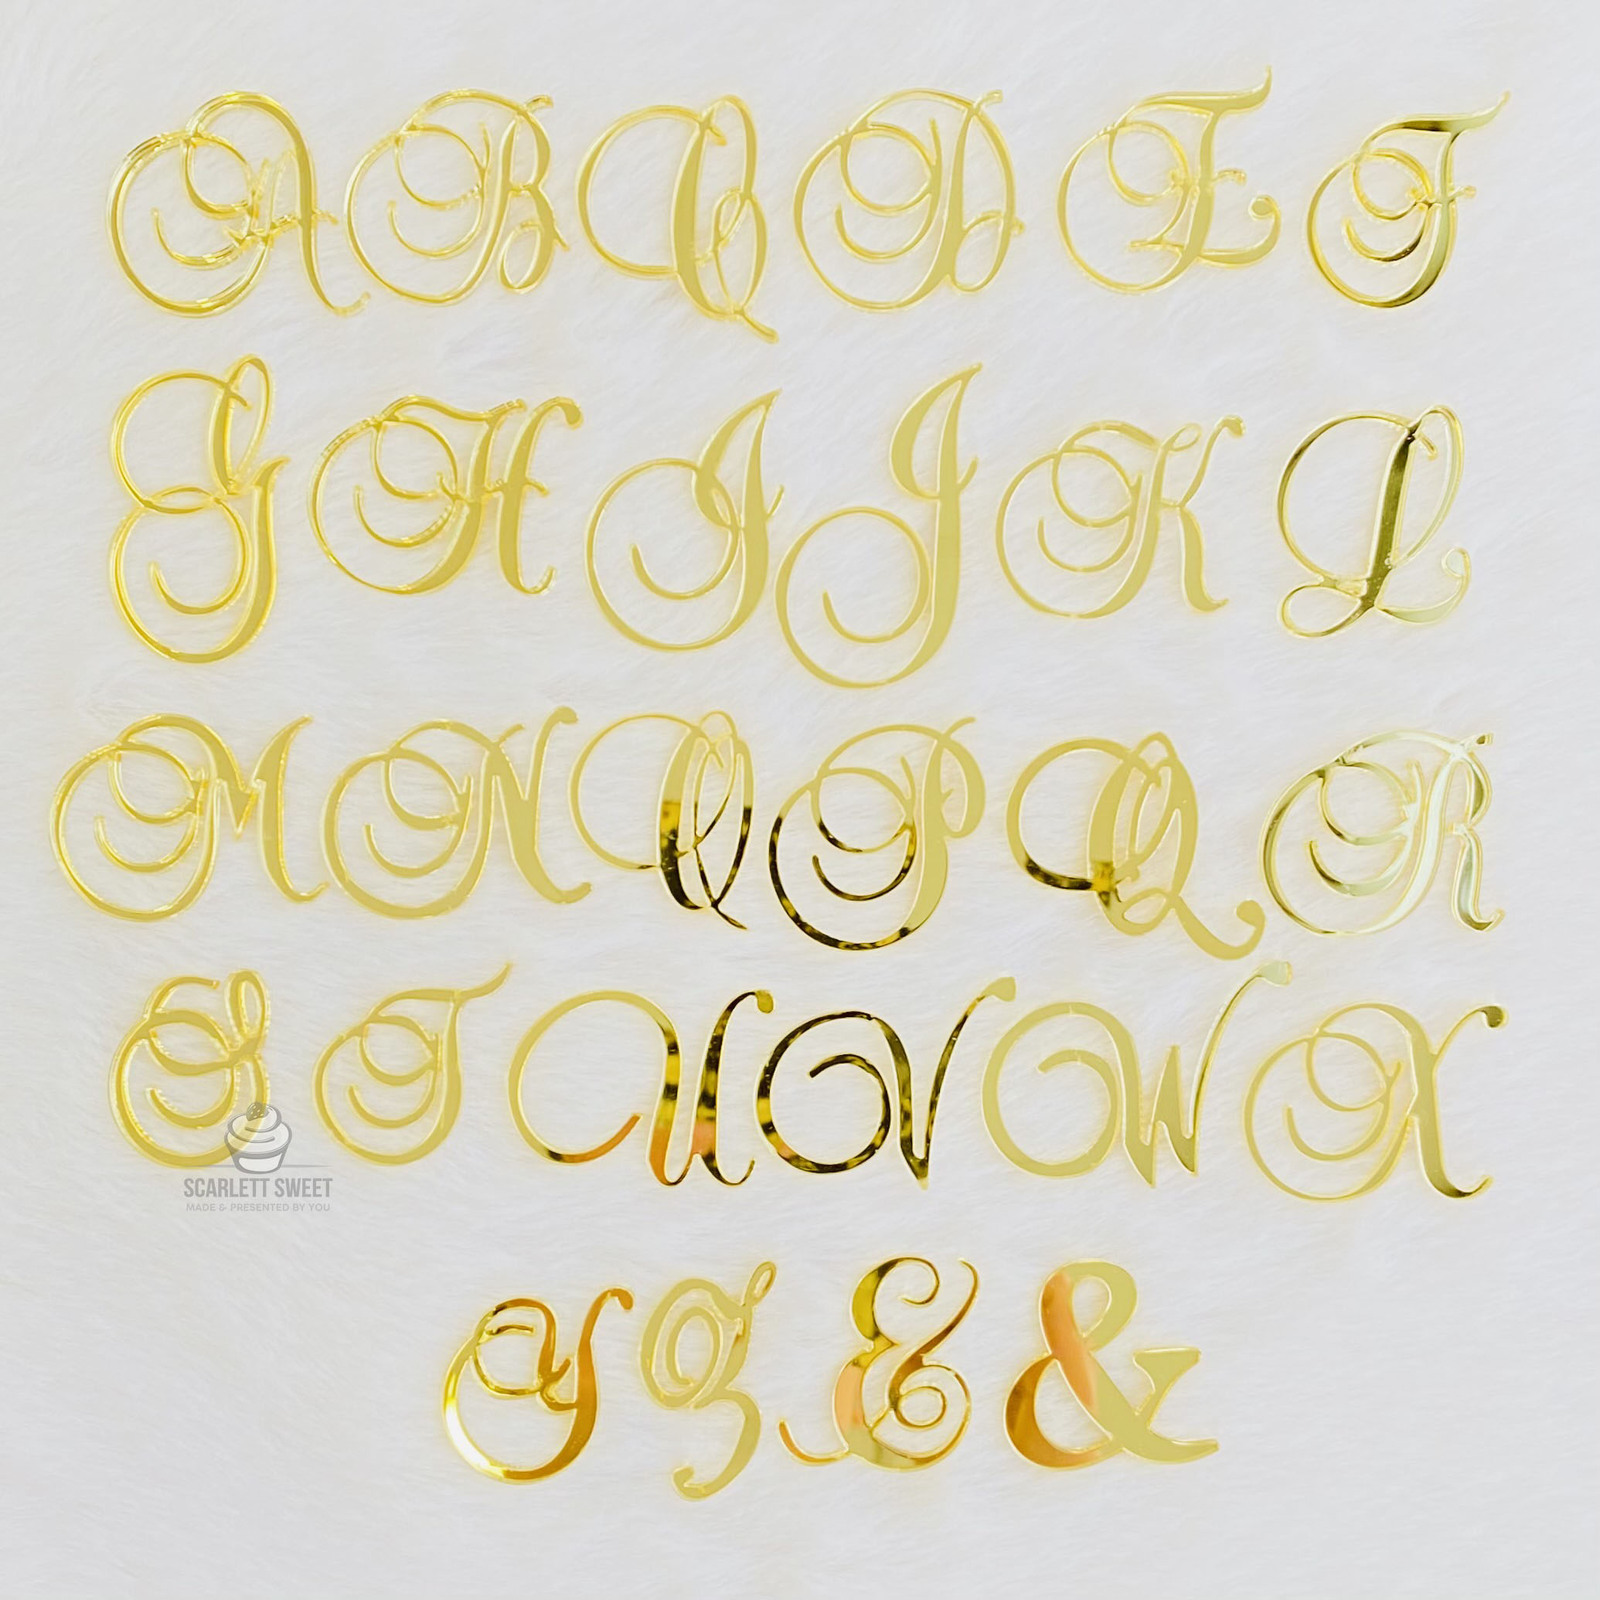 A B C D E F
G H I J K L
M N O P Q R
S T U V W X
SCARLETT SWEET
MADE & PRESENTED BY YOU
Y Z & &